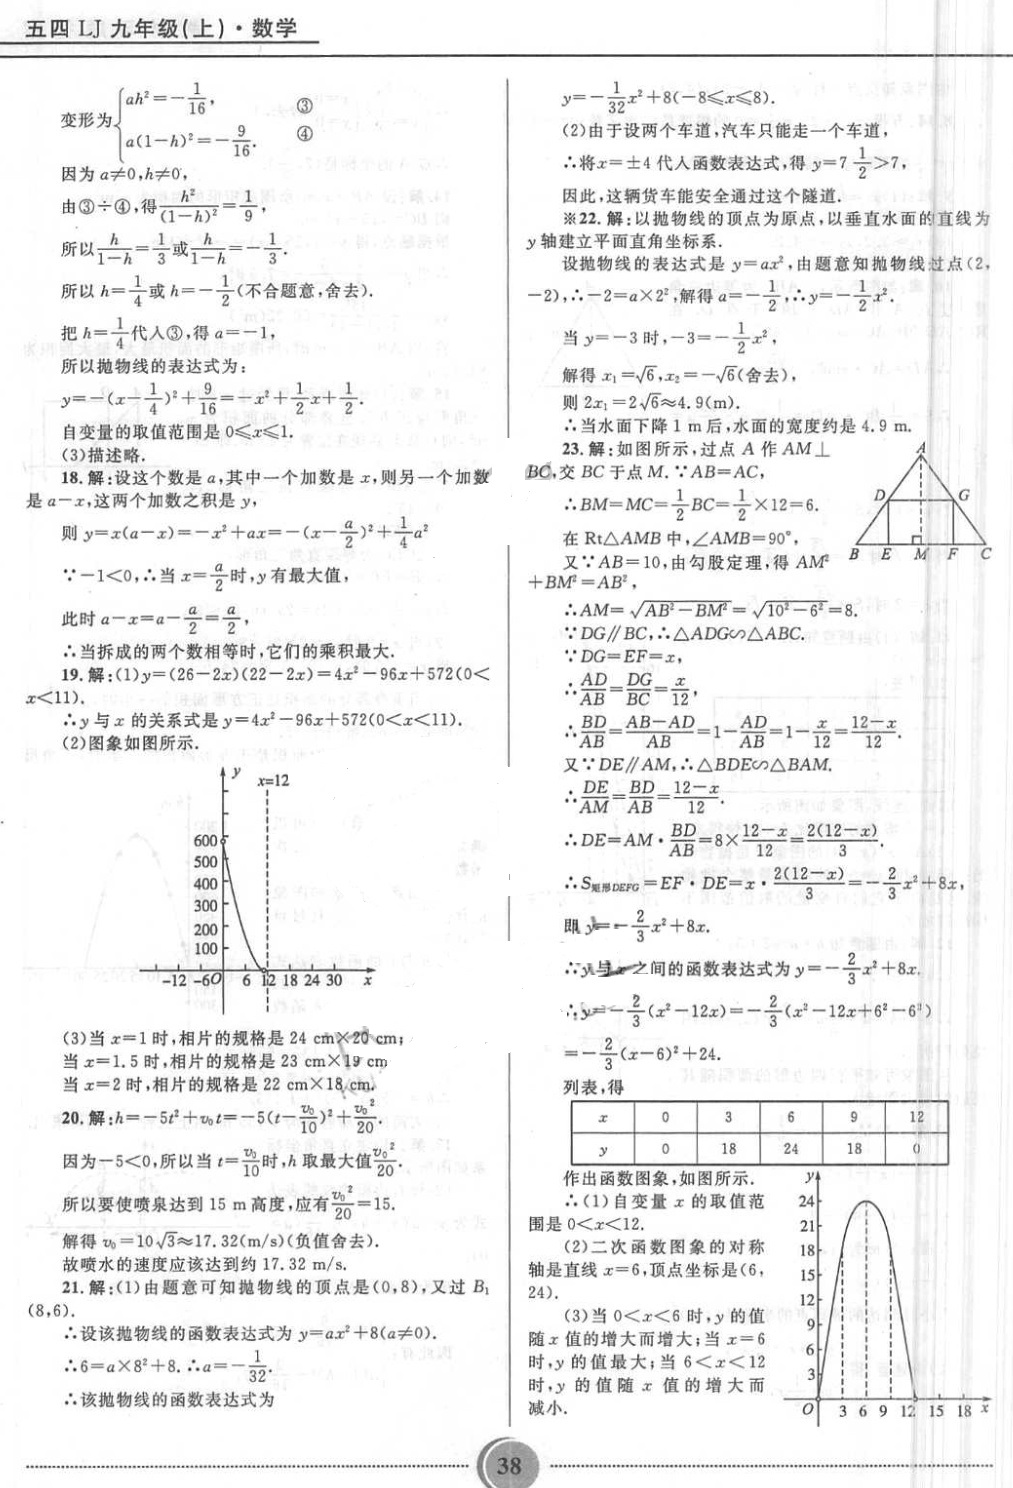 五四 LJ 九年级(上)·数学
变形为{ah²=-1/16, ③
a(1-h)²=-9/16. ④
因为 a≠0,h≠0,
由③÷④,得h²/(1-h)²=1/9,
所以h/(1-h)=1/3或h/(1-h)=-1/3.
所以 h=1/4或 h=-1/2(不合题意,舍去).
把 h=1/4代人③,得 a=-1,
所以抛物线的表达式为:
y=-(x-1/4)²+9/16=-x²+1/2x+1/2.
自变量的取值范围是 0≤x≤1.
(3)描述略.
18.解:设这个数是 a,其中一个加数是 x,则另一个加数
是 a-x,这两个加数之积是 y,
则 y=x(a-x)=-x²+ax=-(x-a/2)²+1/4a²
∵-1<0,∴当 x=a/2时,y 有最大值,
此时 a-x=a-a/2=a/2,
∴当拆成的两个数相等时,它们的乘积最大.
19.解:(1)y=(26-2x)(22-2x)=4x²-96x+572(0<
x<11).
∴y 与 x 的关系式是 y=4x²-96x+572(0<x<11).
(2)图象如图所示.
y
x=12
600
500
400
300
200
100
-12 -6 O 6 12 18 24 30 x
(3)当 x=1 时,相片的规格是 24 cm×20 cm;
当 x=1.5 时,相片的规格是 23 cm×19 cm
当 x=2 时,相片的规格是 22 cm×18 cm.
20.解:h=-5t²+v₀t=-5(t-v₀/10)²+v₀²/20.
因为-5<0,所以当 t=v₀/10时,h 取最大值v₀²/20.
所以要使喷泉达到 15 m 高度,应有v₀²/20=15.
解得 v₀=10√3≈17.32(m/s)(负值舍去).
故喷水的速度应该达到约 17.32 m/s.
21.解:(1)由题意可知抛物线的顶点是(0,8),又过 B₁
(8,6).
∴设该抛物线的函数表达式为 y=ax²+8(a≠0).
∴6=a×8²+8.∴a=-1/32.
∴该抛物线的函数表达式为
y=-1/32x²+8(-8≤x≤8).
(2)由于设两个车道,汽车只能走一个车道,
∴将x=±4 代人函数表达式,得 y=7 1/2>7,
因此,这辆货车能安全通过这个隧道.
※22.解:以抛物线的顶点为原点,以垂直水面的直线为
y 轴建立平面直角坐标系.
设抛物线的表达式是 y=ax²,由题意知抛物线过点(2,
-2),∴-2=a×2²,解得 a=-1/2,∴y=-1/2x².
当 y=-3 时,-3=-1/2x²,
解得 x₁=√6,x₂=-√6(舍去),
则 2x₁=2√6≈4.9(m).
∴当水面下降 1 m 后,水面的宽度约是 4.9 m.
23.解:如图所示,过点 A 作 AM⊥
BC,交 BC 于点 M.∵AB=AC,
∴BM=MC=1/2BC=1/2×12=6.
在 Rt△AMB 中,∠AMB=90°,
又∵AB=10,由勾股定理,得 AM²
+BM²=AB²,
A
D G
B E M F C
∴AM=√(AB²-BM²)=√(10²-6²)=8.
∵DG∥BC,∴△ADG∽△ABC.
∵DG=EF=x,
∴AD/AB=DG/BC=x/12,
∴BD/AB=(AB-AD)/AB=1-AD/AB=1-x/12=(12-x)/12.
又∵DE∥AM,∴△BDE∽△BAM.
∴DE/AM=BD/AB=(12-x)/12.
∴DE=AM·BD/AB=8×(12-x)/12=2(12-x)/3.
∴S矩形DEFG=EF·DE=x·2(12-x)/3=-2/3x²+8x,
即 y=-2/3x²+8x.
∴y与x之间的函数表达式为 y=-2/3x²+8x.
∴y=-2/3(x²-12x)=-2/3(x²-12x+6²-6²)
=-2/3(x-6)²+24.
列表,得
x 0 3 6 9 12
y 0 18 24 18 0
作出函数图象,如图所示.
∴(1)自变量 x 的取值范
围是 0<x<12.
(2)二次函数图象的对称
轴是直线 x=6,顶点坐标是(6,
24).
(3)当 0<x<6 时,y 的值
随 x 值的增大而增大;当 x=6
时,y 的值最大;当 6<x<12
时,y 的值随 x 值的增大而
减小.
y
24
21
18
15
12
9
6
3
O 3 6 9 12 15 18 x
38